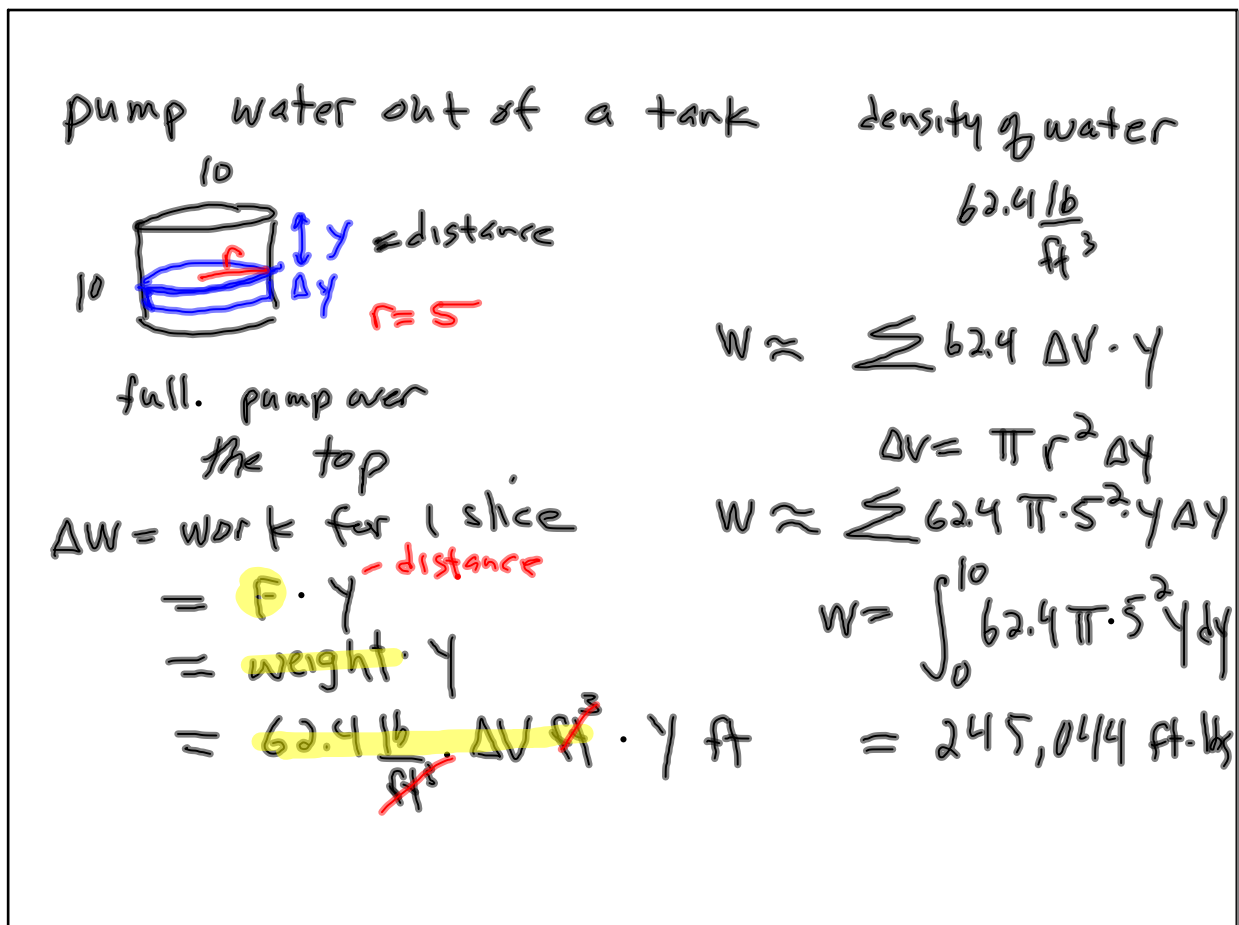 pump water out of a tank
10
y = distance
r
10
Δy
r = 5
full. pump over
the top
ΔW = work for 1 slice
= F · y - distance
= weight · y
= 62.4 lb/ft³ · ΔV ft³ · y ft
density of water
62.4 lb/ft³
W ≈ ∑ 62.4 ΔV · y
ΔV = πr²Δy
W ≈ ∑ 62.4 π·5²·y Δy
W = ∫₀¹⁰ 62.4 π·5² y dy
= 245,044 ft-lbs